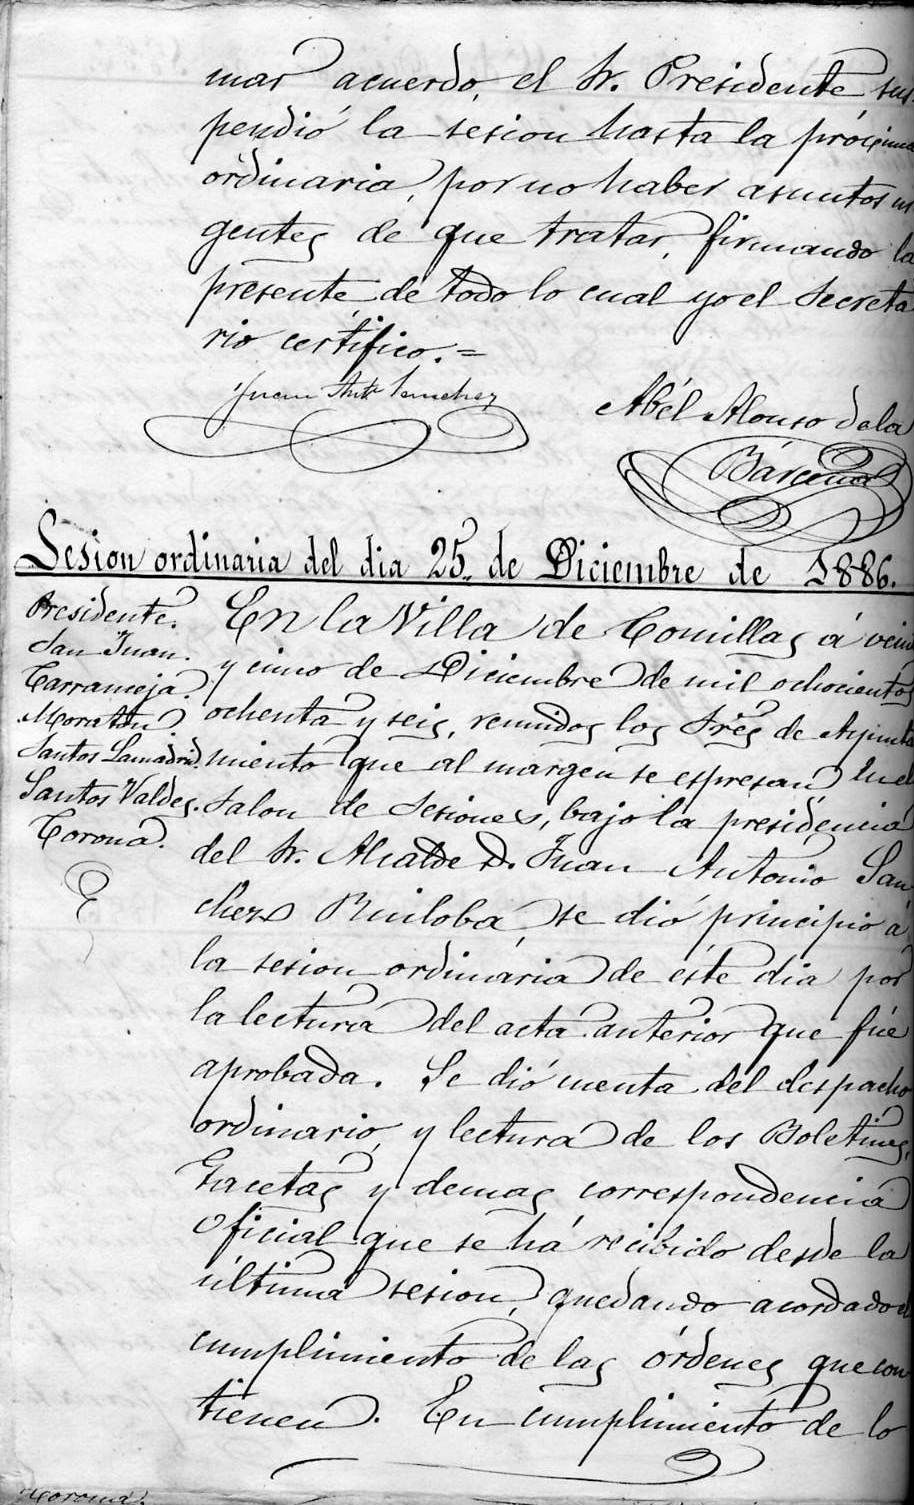 mar acuerdo, el Sr. Presidente sus
pendió la sesion hasta la próxima
ordinaria, por no haber asuntos ur
gentes de que tratar, firmando la
presente de todo lo cual yo el Secreta
rio certifico.=
Juan Anto Sanchez
Abél Alonso de la
Bárcena
Sesion ordinaria del dia 25 de Diciembre de 1886.
Presidente.
San Juan.
Carranceja.
Moratón
Santos Lamadrid.
Santos Valdes.
Corona.
En la Villa de Comillas á vein
y cinco de Diciembre de mil ochocientos
ochenta y seis, reunidos los Sres de Ayunta
miento que al margen se espresan en el
Salon de Sesiones, bajo la presidencia
del Sr. Alcalde D. Juan Antonio San
chez Ruiloba, se dió principio á
la sesion ordinaria de éste dia por
la lectura del acta anterior que fúe
aprobada. Se dió cuenta del despacho
ordinario, y lectura de los Boletines,
Gacetas y demas correspondencia
Oficial que se há recibido desde la
última sesion, quedando acordado el
cumplimiento de las órdenes que con
tienen. En cumplimiento de lo
Corona.